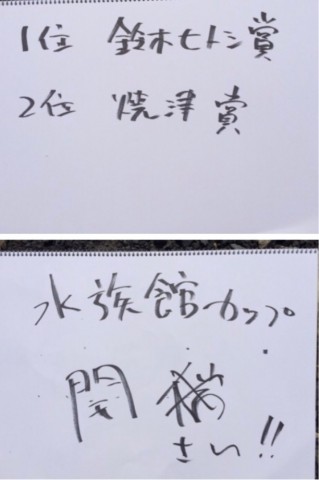 1位 鈴木ヒトシ賞
2位 焼津賞
水族館カップ
さい!!